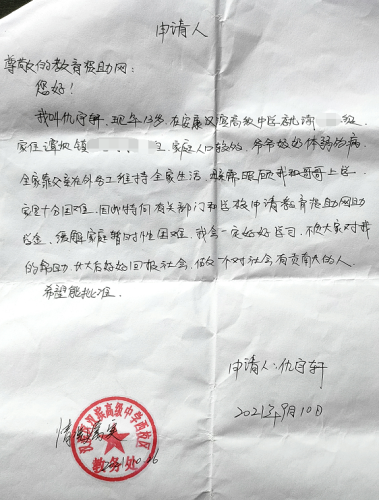 申请人
尊敬的教育援助网:
您好!
我叫仇守轩,现年13岁,在安康汉滨高级中学就读 级
家住谭坝镇 家庭人口较多,爷爷奶奶体弱多病
全家靠父亲在外务工维持全家生活, 照顾我和哥哥上学
家里十分困难,因此特向有关部门和学校申请教育援助网助
学金,缓解家庭暂时性困难,我会一定好好学习,不负大家对我
的帮助,长大后好好回报社会,做一个对社会有贡献的人
希望能批准.
申请人:仇守轩
2021年9月10日
情况属实
汉滨高级中学西校区
教务处